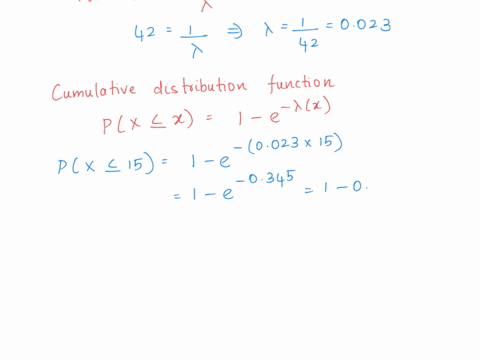 λ
42 = 1/λ ⇒ λ = 1/42 = 0.023
Cumulative distribution function
P(X ≤ x) = 1 - e^{-λ(x)}
P(X ≤ 15) = 1 - e^{-(0.023 × 15)}
= 1 - e^{-0.345} = 1 - 0.